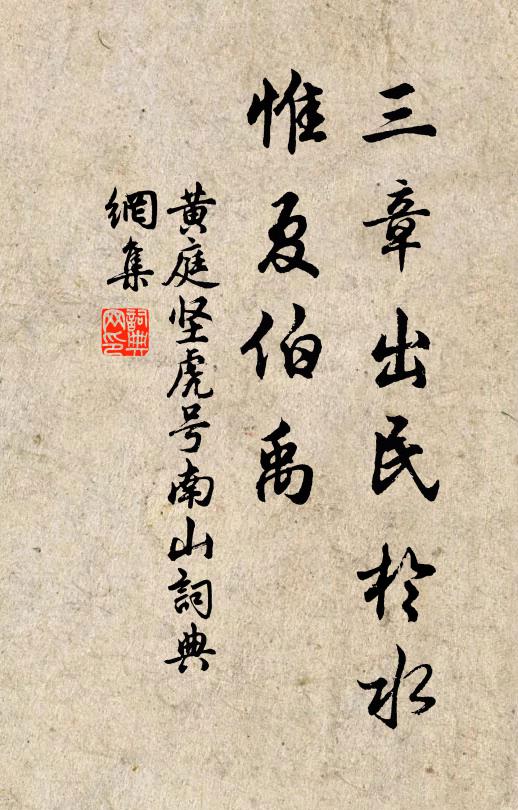 三章出民於水
惟夏伯禹
黄庭坚虎号南山詞典
網集
詞典
网印